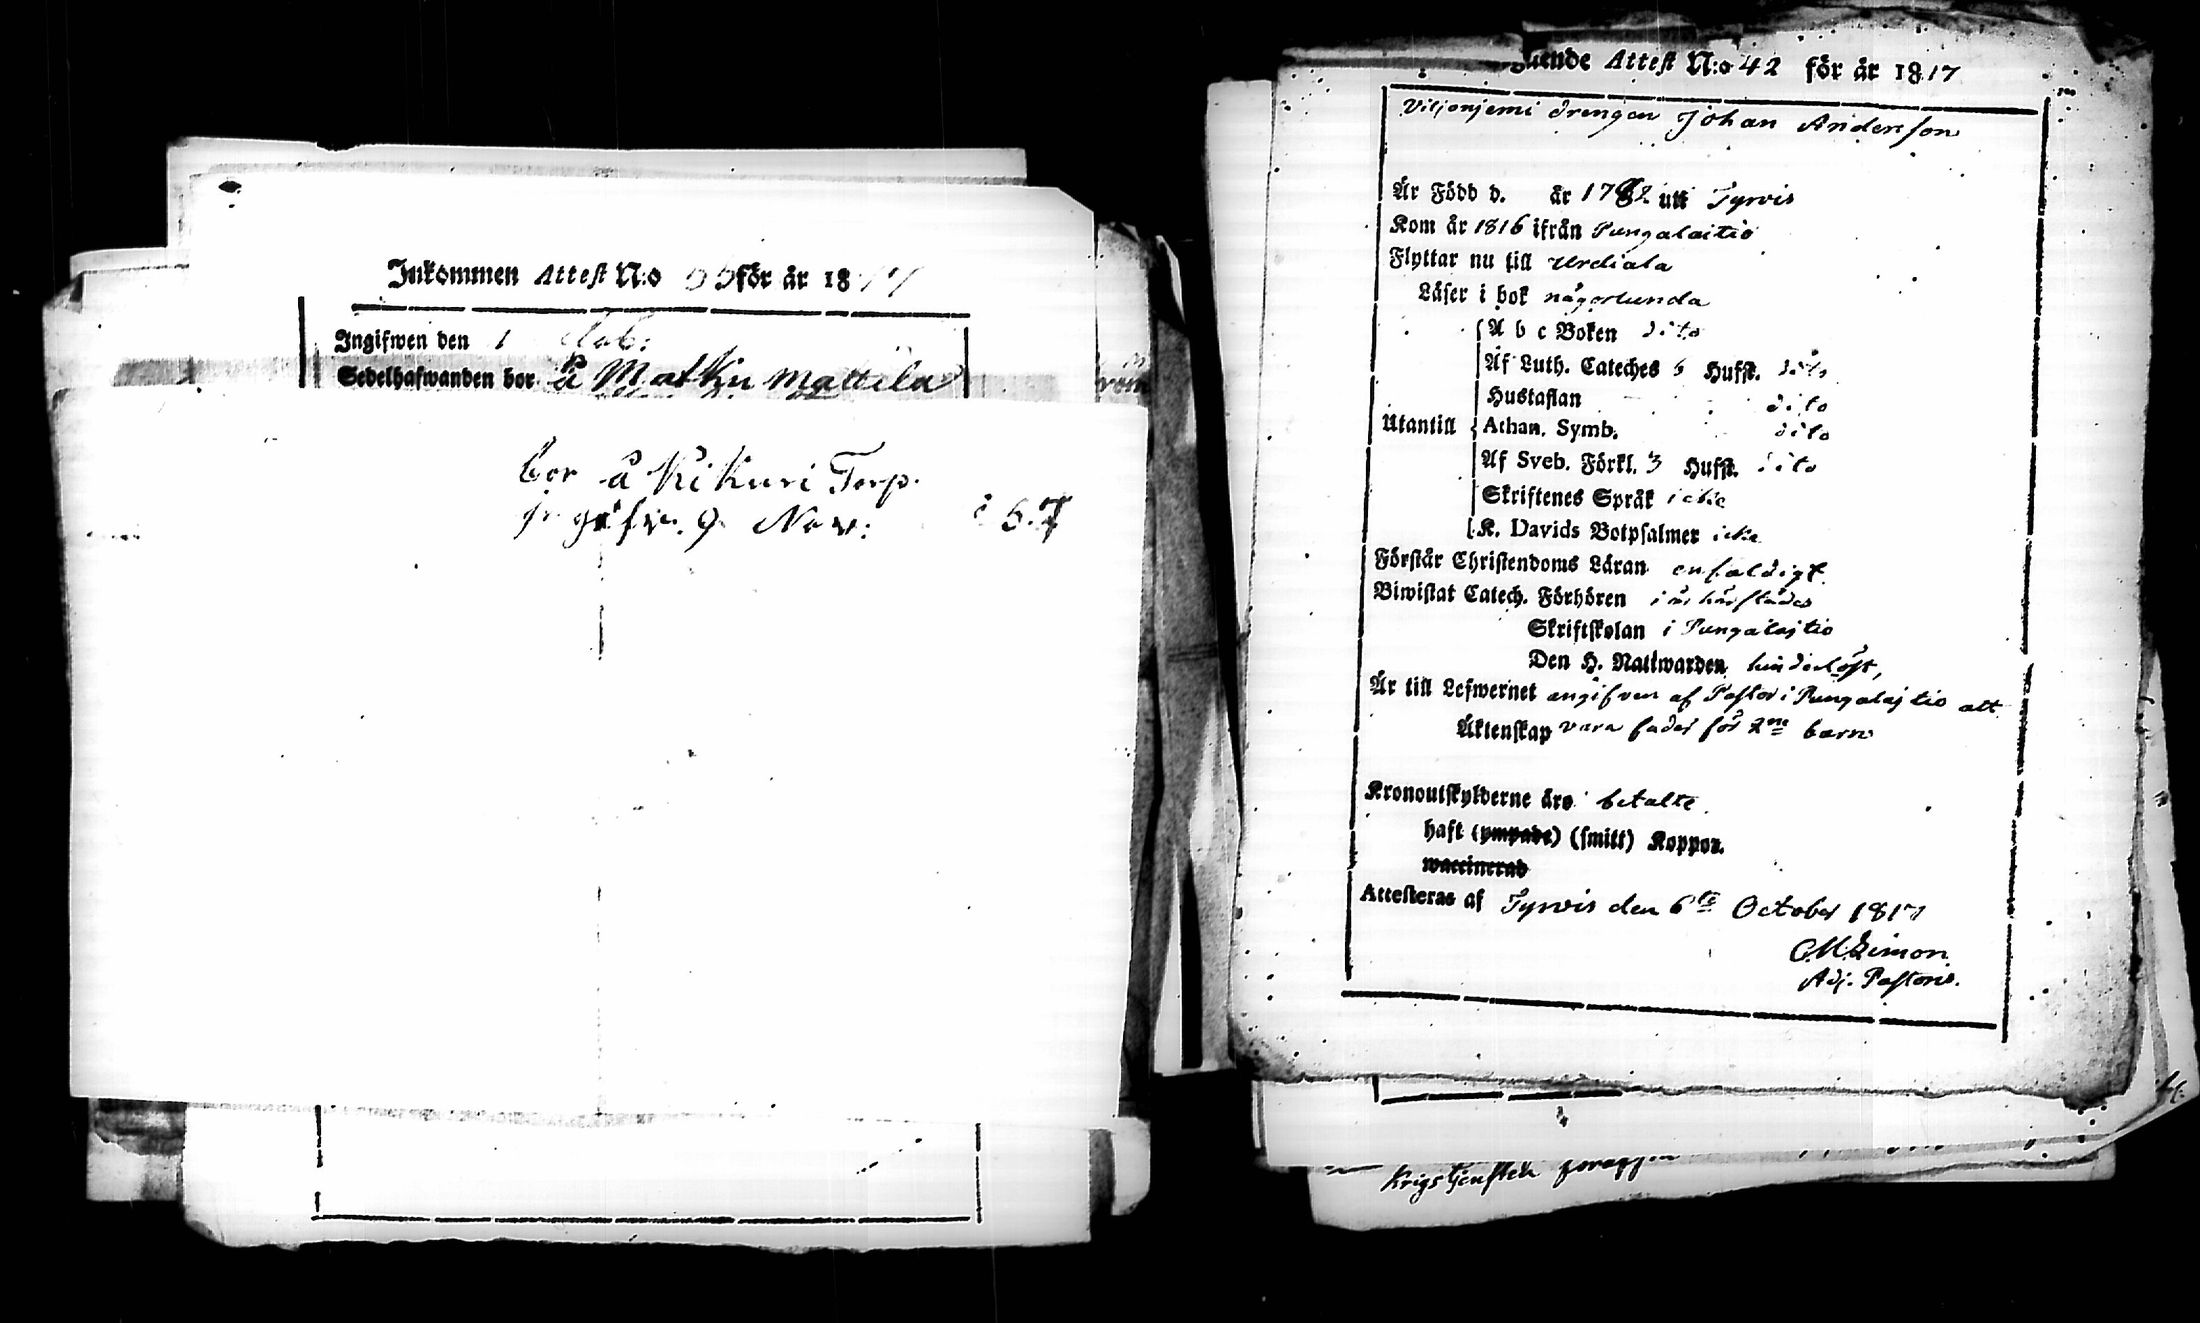 Inkommen Attest N:o 55 för år 1817
Ingifwen den 1
Sedelhafwanden bor å Matku Mattila
bor å Kikuri Torp.
ingifv. 9 Nov:
gående Attest N:o 42 för år 1817
Viljonjemi drengen Johan Andersson
Är Född d. år 1782 uti Tyrvis
Kom år 1816 ifrån Pungalaitio
Flyttar nu till Urdiala
Läser i bok någorlunda
A b c Boken dito
Af Luth. Cateches 5 Hufst. dito
Hustaflan dito
Utantill Athan. Symb. dito
Af Sveb. Förkl. 3 Hufst. dito
Skriftenes Språk icke
K. Davids Botpsalmer icke
Förstår Christendoms Läran enfaldigt
Biwistat Catech. Förhören i år härstädes
Skriftskolan i Pungalajtio
Den H. Nattwarden hinderlöst,
Är till Lefwernet angifven af Pastor i Pungalajtio att
Äktenskap vara fader för 2ne barn
Kronoutskylderne äro betalte.
haft (ympade) (smitt) Koppor.
waccinerad
Attesteras af Tyrvis den 6te October 1817
C.M. Simon
Adj. Pastoris.
Krigstjensten